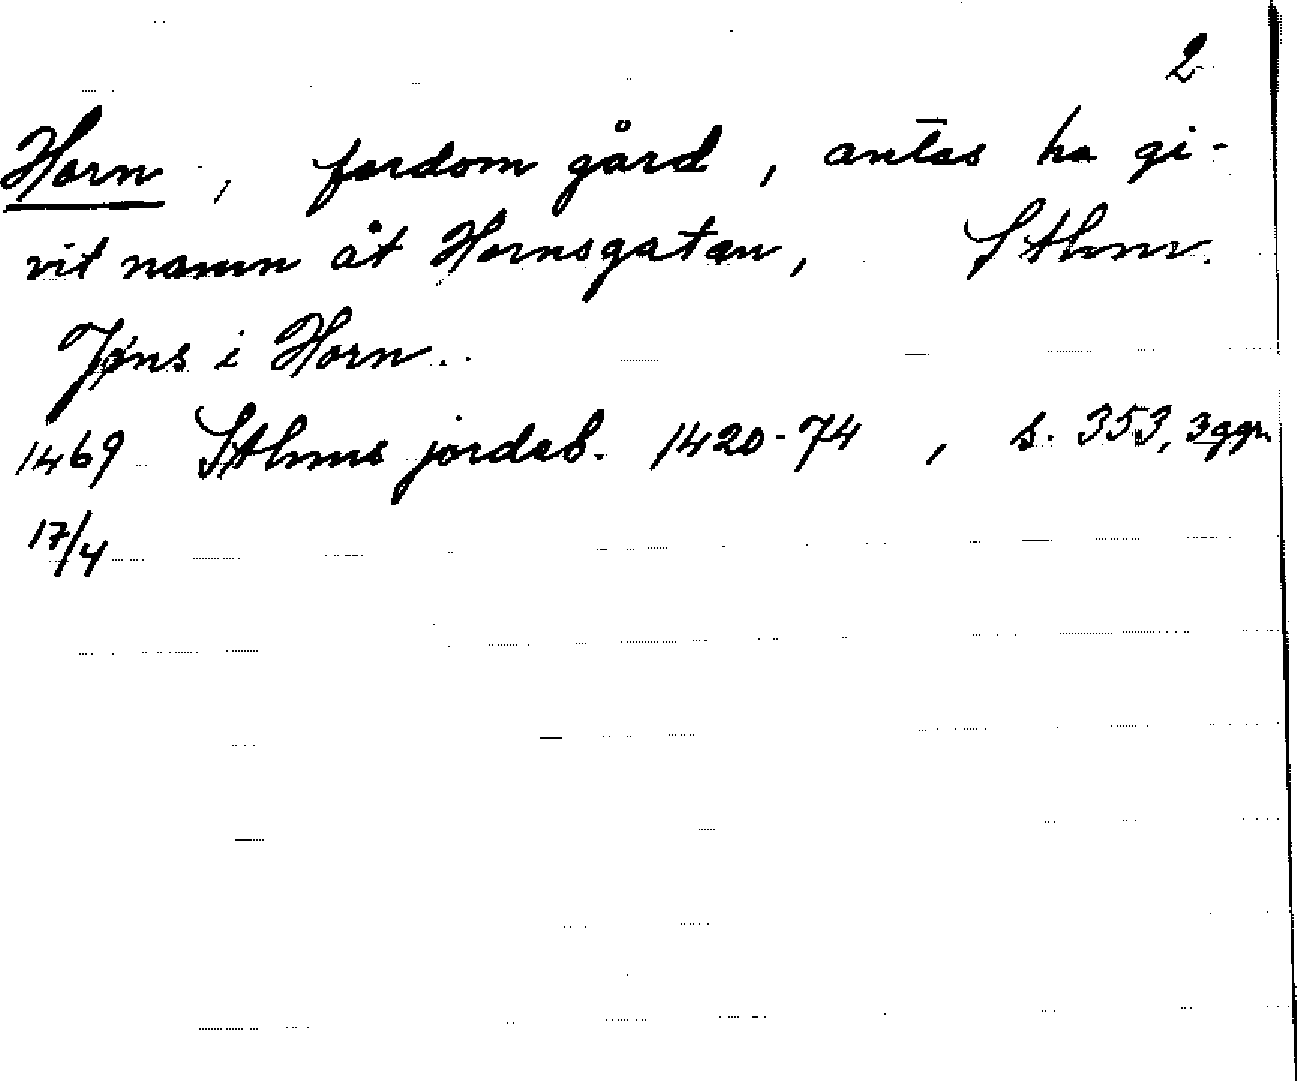 2
Horn, fordom gård, antas ha gi-
vit namn åt Hornsgatan, Sthm.
Jøns i Horn.
1469 Sthms jordeb. 1420-74, s. 353, 3 ggr.
17/4